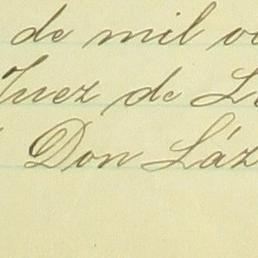 de mil o
Juez de L
Don Láz